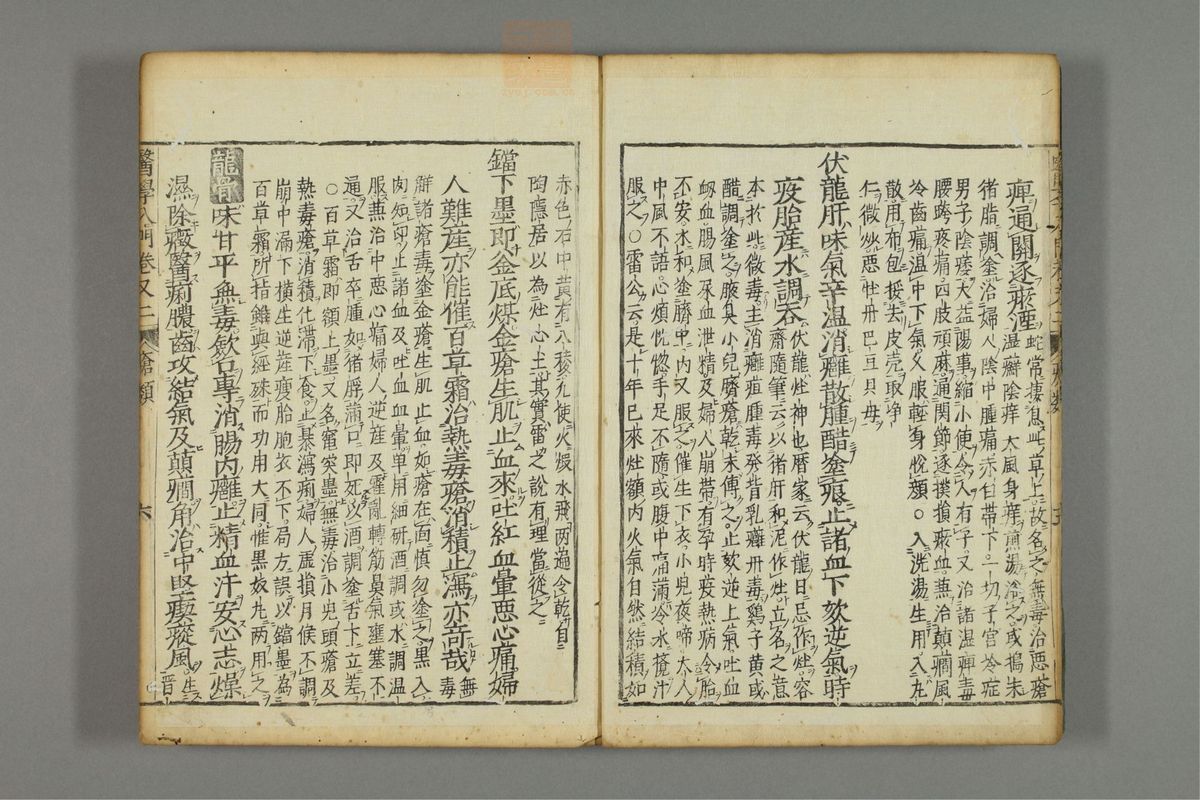 痺通關逐瘀湮蛇常棲息此草上故名之無毒治惡瘡
濕癬陰痒大風身痒煎湯浴之或搗末
猪脂調塗治婦人陰中腫痛赤白帶下一切子宮冷症
男子陰痿大益陽事縮小便令人有子又治諸濕痺毒
腰胯疼痛四肢頑麻通關節逐撲損瘀血蒸治顛癎風
冷齒痛溫中下氣久服輕身悅顏○入洗湯生用入丸
散用布包挼去皮売取净
仁微炒惡牡丹巴豆貝母
伏龍肝味氣辛温消癰散腫醋塗痕止諸血下欬逆氣時
疫胎産水調吞伏龍灶神也曆家云伏龍日忌作灶容
齋隨筆云以猪肝和泥作灶立名之意
本於此微毒主消癰疽腫毒發背乳癰丹毒鷄子黃或
醋調塗之腋臭小兒臍瘡乾末傅之止欬逆上氣吐血
衂血腸風尿血泄精及婦人崩帶有孕時疫熱病令胎
不安水和塗臍中内又服之催生下衣小兒夜啼大人
中風不語心煩恍惚手足不隨或腹中痛滿冷水攪汁
服之○雷公云是十年已來灶額内火氣自然結積如
赤色石中黃有八稜凡使火煅水飛两遍令乾自
陶隱居以為灶心土其實雷之說有理當從之
鐺下墨即釜底煤金瘡生肌止血來吐紅血暈惡心痛婦
人難産亦能催百草霜治熱毒瘡消積止瀉亦竒哉無毒
辟諸瘡毒塗金瘡生肌止血如瘡在面慎勿塗之黑入
肉如印止諸血及吐血血暈单用細研酒調或水調温
服蒸治中惡心痛婦人逆産及霍亂轉筋鼻氣壅塞不
通又治舌卒腫如猪脬滿口即死以酒調塗舌下立差
○百草霜即額上墨又名竈突墨無毒治小兒頭瘡及
熱毒瘡消積化滯下食止暴瀉痢婦人虛損月候不調
崩中漏下横生逆産瘦胎胞衣不下局方誤以鐺墨為
百草霜所指雖與經殊而功用大同惟黑奴丸两用之
龍骨味甘平無毒歛口專消腸内癰止精血汗安心志燥
濕除癥醫痢膿齒攻結氣及顛癎角治中堅瘈瘲風生晋
醫學入門卷又二 瘡類 六